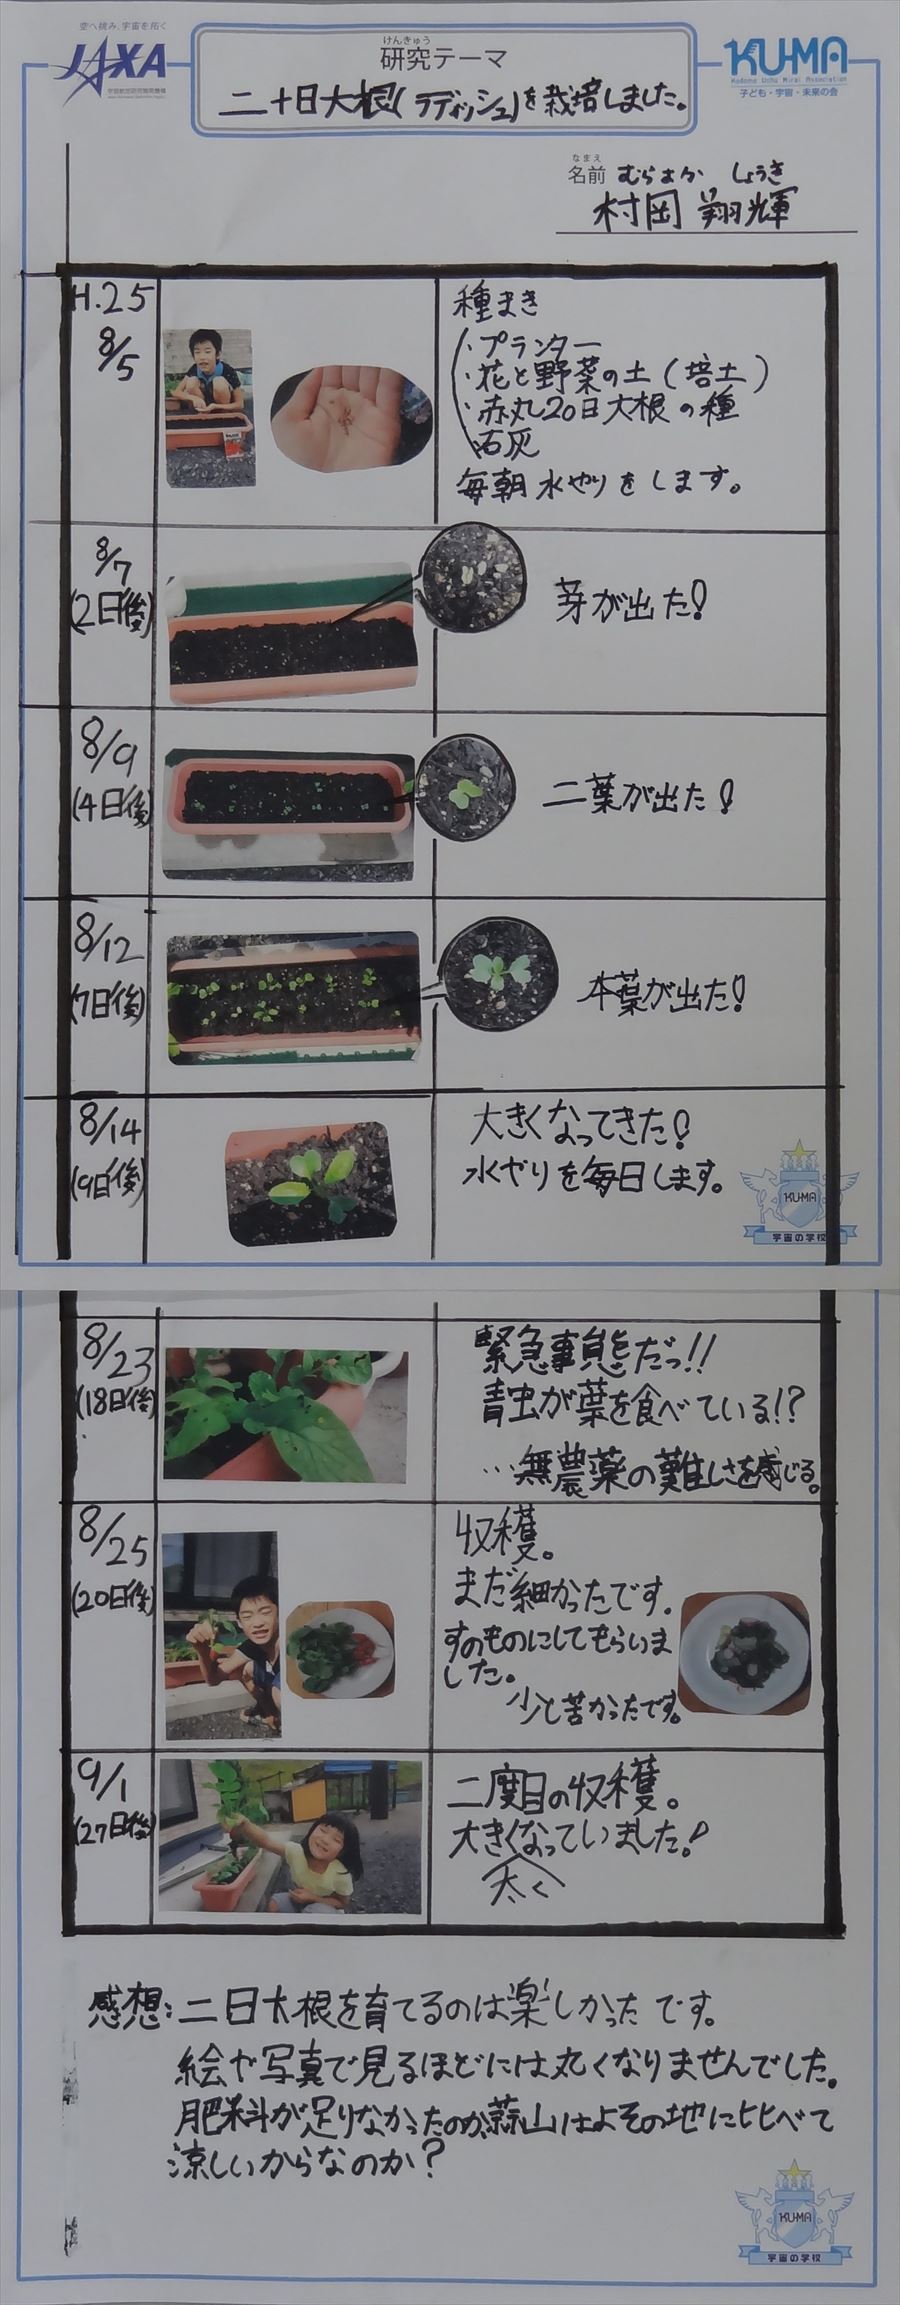 空へ挑み、宇宙を拓く
JAXA
宇宙航空研究開発機構
けんきゅう
研究テーマ
二十日大根(ラディッシュ)を栽培しました。
KU-MA
Kodomo Uchu Mirai Association
子ども・宇宙・未来の会
なまえ
名前 むらおか しょうき
村岡 翔輝
H.25
8/5
種まき
・プランター
・花と野菜の土(培土)
・赤丸20日大根の種
・石灰
毎朝水やりをします。
8/7
(2日後)
芽が出た!
8/9
(4日後)
二葉が出た!
8/12
(7日後)
本葉が出た!
8/14
(9日後)
大きくなってきた!
水やりを毎日します。
KU-MA
宇宙の学校
8/23
(18日後)
緊急事態だっ!!
青虫が葉を食べている!?
…無農薬の難しさを感じる。
8/25
(20日後)
収穫。
まだ細かったです。
すのものにしてもらいま
した。
少し苦かったです。
9/1
(27日後)
二度目の収穫。
大きくなっていました!
太く
感想:二日大根を育てるのは楽しかったです。
絵や写真で見るほどには丸くなりませんでした。
肥料が足りなかったのか、蒜山はよその地に比べて
涼しいからなのか?
KU-MA
宇宙の学校